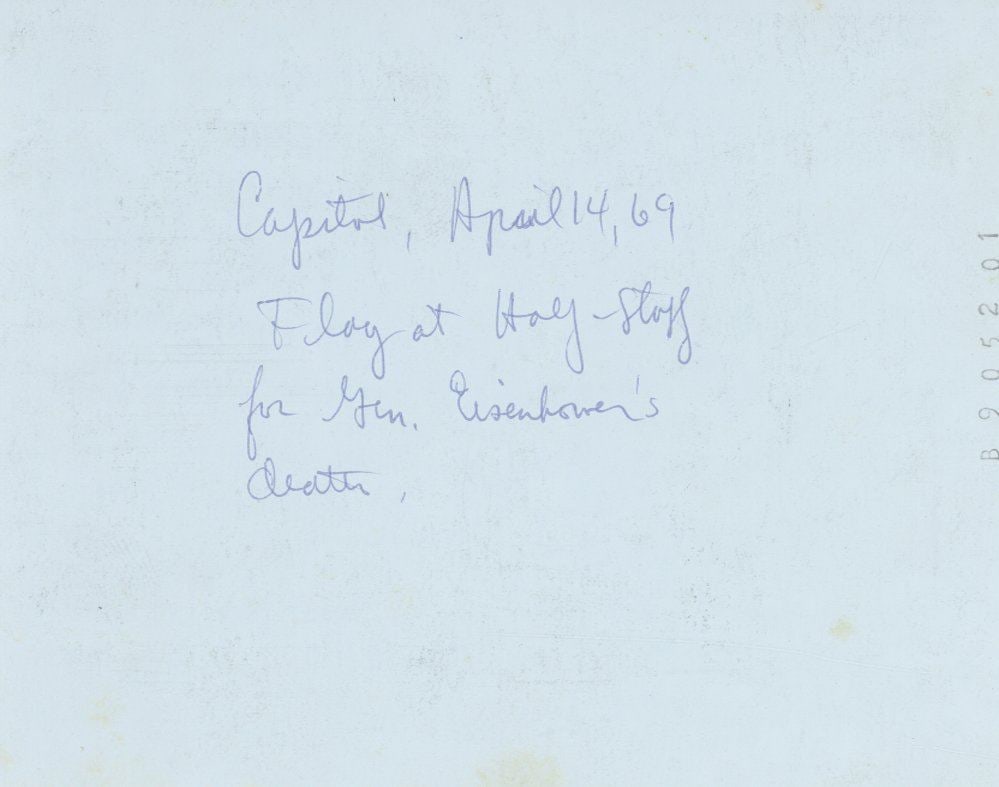 Capitol, April 14, 69
Flag at Half-Staff
for Gen. Eisenhower's
death.
B9052 01